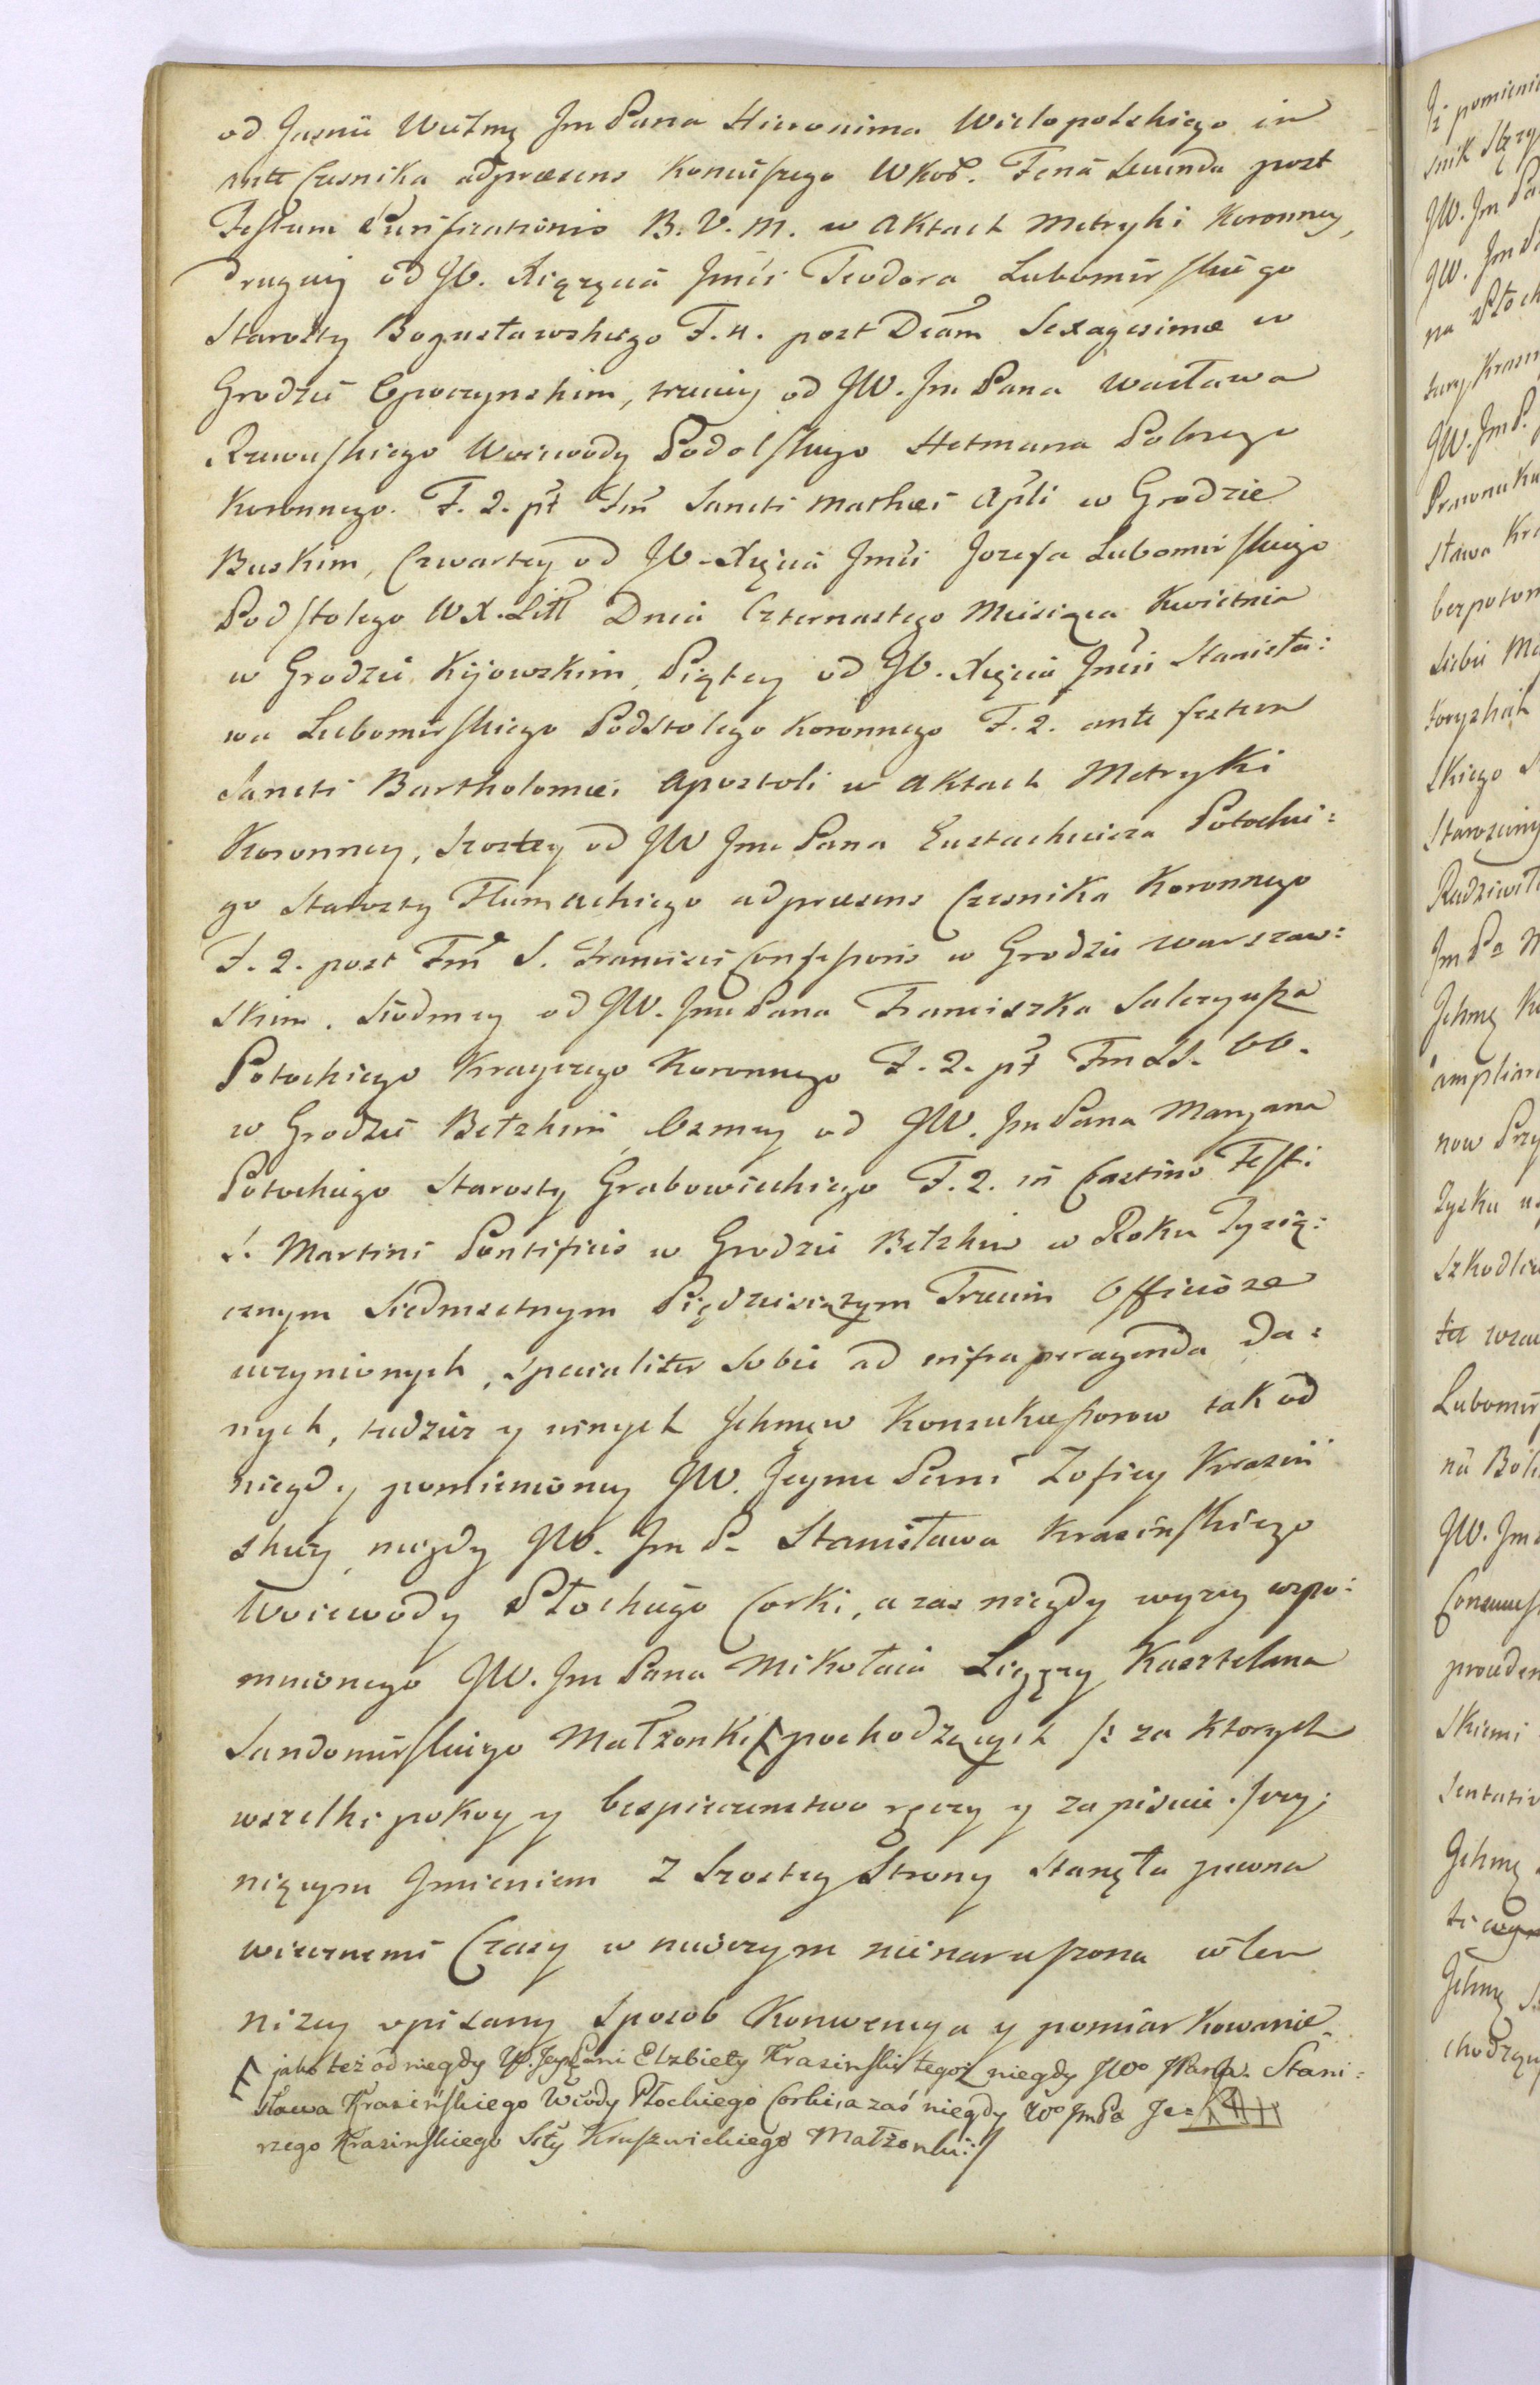 od Jaśnie Wielmę Jm Pana Hieronima Wielopolskiego in
ante Czesnika adpraesens Koniuszego WKor. Feria Secunda post
Festum Purificationis B. V. M. w Aktach Metryki Koronney,
drugiey od JO. Xiążęcia Jmći Teodora Lubomirskiego
Starosty Bogusławskiego F. 4. post Dcam Sexagesimae w
Grodzie Opoczynskim, trzeciey od JW. Jm Pana Wacława
Rzewuskiego Woiewody Podolskiego Hetmana Polnego
Koronnego. F. 2. pt Fm Sancti Mathaei Apli w Grodzie
Buskim, Czwartey od JO. Xięcia Jmći Jozefa Lubomirskiego
Podstolego W. X. Litt Dnia Czternastego Miesiąca Kwietnia
w Grodzie Kijowskim, Piątey od JO. Xięcia Jmći Stanisła:
wa Lubomirskiego Podstolego Koronnego F. 2. ante festum
Sancti Bartholomaei Apostoli w Aktach Metryki
Koronney, Szostey od JW Jmc Pana Eustachiusza Potockie:
go Starosty Tlumackiego adpraesens Czesnika Koronnego
F. 2. post Fm S. Francisci Confessoris w Grodzie Warszaw:
skim. Siodmey od JW. Jmc Pana Franciszka Salezyusza
Potockiego Krayczego Koronnego F. 2. pt Fm SS. OO.
w Grodzie Bełzkim, Osmey od JW. Jm Pana Maryana
Potockiego Starosty Grabowieckiego F. 2. in Crastino Festi
S. Martini Pontificis w Grodzie Bełzkim w Roku Tysią:
cznym Siedmsetnym Pięćdziesiątym Trzecim Officiose
uczynionych, specialiter sobie ad infra peragenda da:
nych, tudzież y innych Ichmęw Konsukcessorow tak od
niegdy pomienioney JW. Jeymc Pani Zofiey Krasiń
skiey, niegdy JW. Jm P. Stanisława Krasińskiego
Woiewody Płockiego Corki, a zas niegdy wyzey wspo:
mnionego JW. Jm Pana Mikołaia Ligęzy Kasztelana
Sandomirskiego Małżonki [ pochodzących /: za ktorych
wszelki pokoy y bespieczenstwo ręczy y zapisuie. / czy:
niącym Jmieniem z Szostey Strony Stanęła pewna
wiecznemi Czasy w niwczym nienaruszona w ten
nizey opisany sposob Konwencya y pomiarkowanie
[ jako też od niegdy W. Jey Pani Elzbiety Krasinskiey tegoż niegdy JWo JPana Stani:
sława Krasińskiego Wdy Płockiego Corki, a zaś niegdy Wo Jm Pa Je:
rzego Krasinskiego Stty Kruszwickiego Małżonki :/